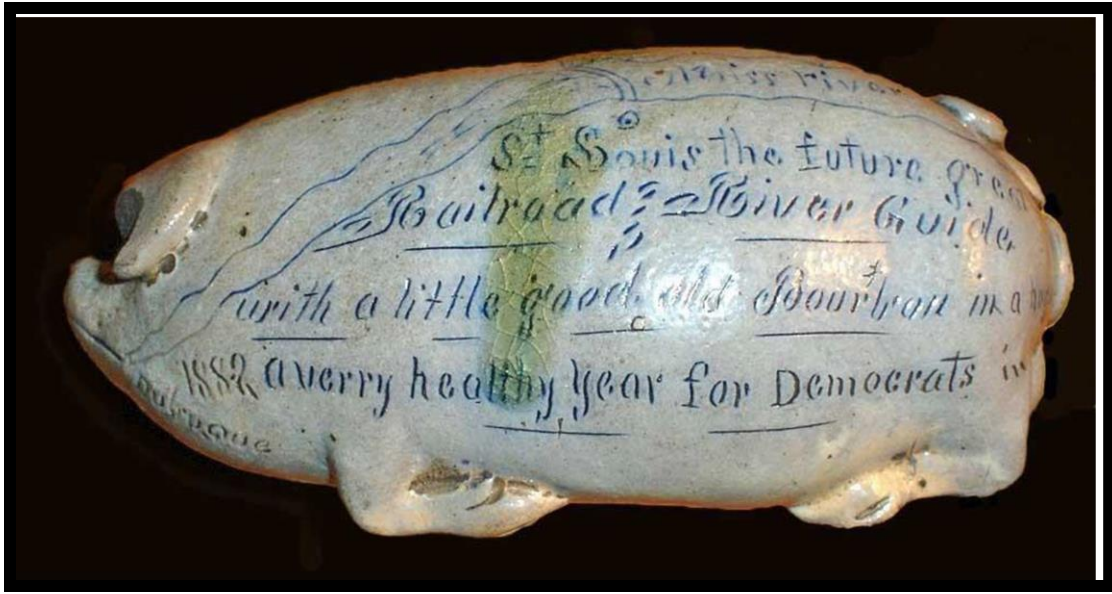 Miss river
St Louis the future
Railroad & River Guide
with a little good old Bourbon in a
1882 a verry healthy year for Democrats in
Dubuque